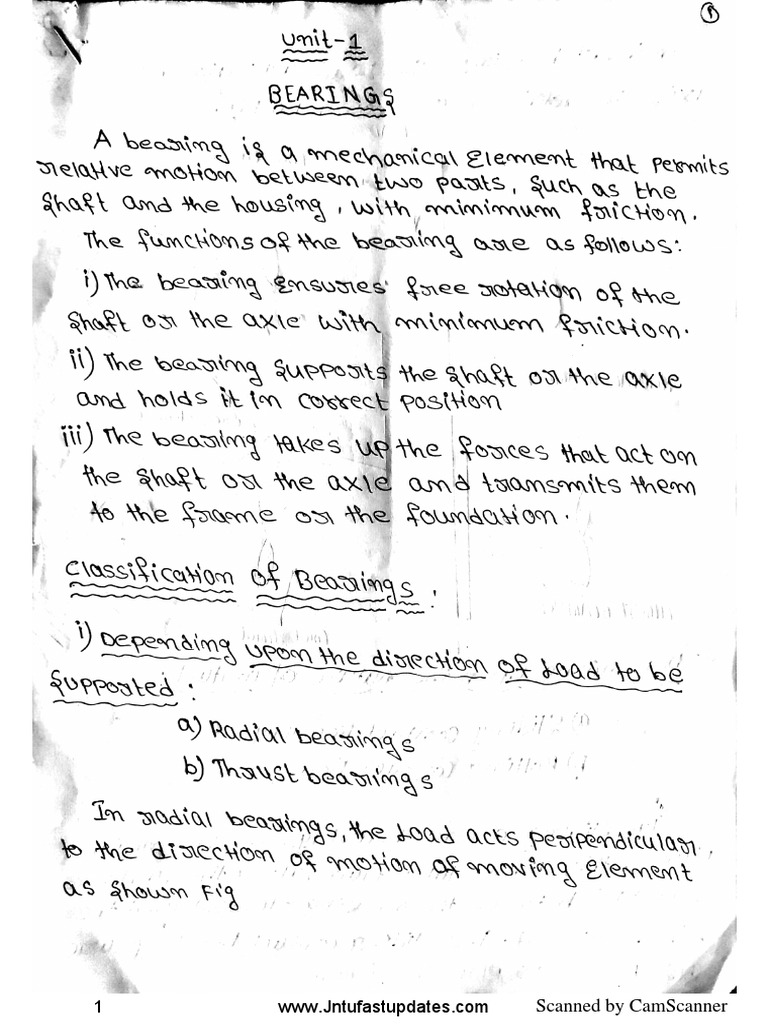 1
Unit-1
BEARINGS
A bearing is a mechanical Element that permits
relative motion between two parts, such as the
shaft and the housing, with minimum friction.
The functions of the bearing are as follows:
i) The bearing Ensures free rotation of the
shaft or the axle with minimum friction.
ii) The bearing supports the shaft or the axle
and holds it in correct position
iii) The bearing takes up the forces that act on
the shaft or the axle and transmits them
to the frame or the foundation.
Classification of Bearings:
i) Depending upon the direction of Load to be
supported:
a) Radial bearings
b) Thrust bearings
In radial bearings, the Load acts perpendicular
to the direction of motion of moving Element
as shown Fig
1 www.Jntufastupdates.com Scanned by CamScanner